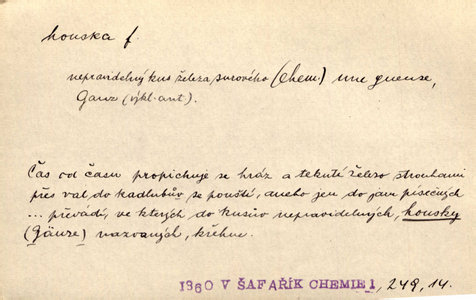 houska f.
nepravidelný kus železa surového (chem.) une gueuse,
Ganz (výkl. aut.).
Čas od času propichuje se hráz a tekuté železo strouhami
přes val do kadlubův se pouští, aneb jen do jam písečných
... převádí, ve kterých do kusův nepravidelných, housky
(Gänze) nazvaných, křehne.
1860 V ŠAFAŘÍK CHEMIE 1, 249, 14.